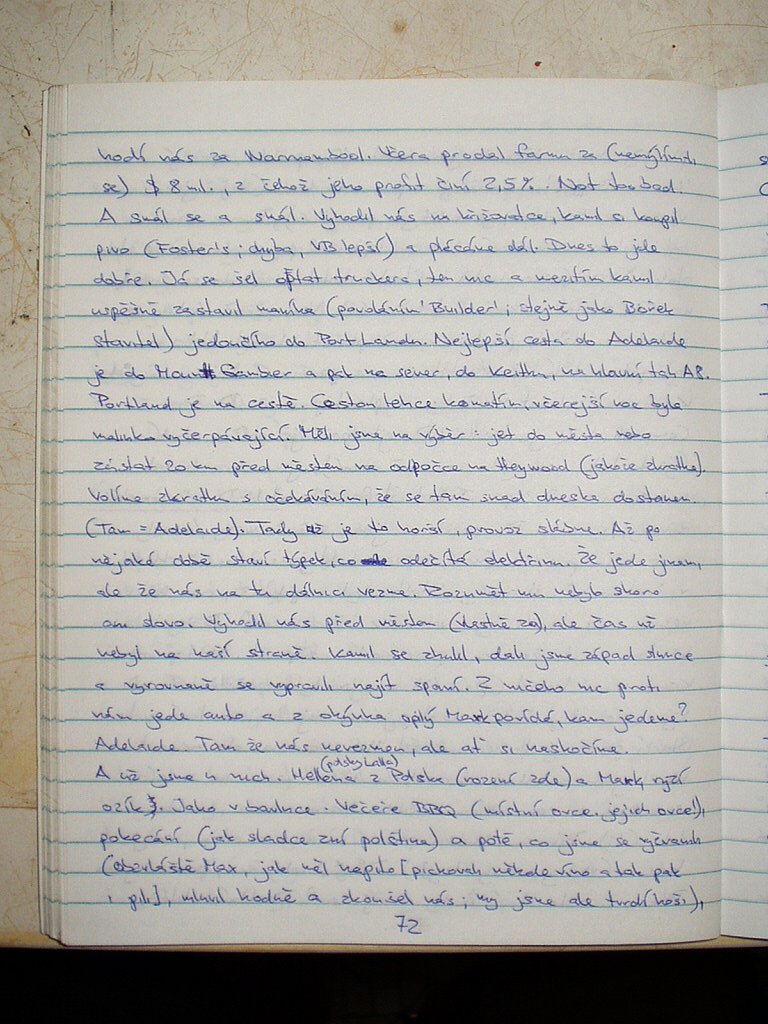 hodí nás za Warrnambool. Včera prodal farmu za (nemýlímli
se) $ 8 mil., z čehož jeho profit činí 2,5%. Not too bad.
A smál se a smál. Vyhodil nás na křižovatce, kamil si koupil
pivo (Foster's; chyba, VB lepší) a plácáme dál. Dnes to jde
dobře. Já se šel optat truckera, ten nic a mezitím kamil
úspěšně zastavil maníka (povoláním 'Builder'; stejně jako Bořek
stavitel) jedoucího do Portlandu. Nejlepší cesta do Adelaide
je do Mount Gambier a pak na sever, do Keithu, na hlavní tah A8.
Portland je na cestě. Cestou lehce komatím, včerejší noc byla
malinko vyčerpávající. Měli jsme na výběr: jet do města nebo
zůstat 20 km před městem na odpočce na Heywood (jakože zkratka).
Volíme zkratku s očekáváním, že se tam snad dneska dostanem.
(Tam = Adelaide). Tady už je to horší, provoz slábne. Až po
nějaké době staví týpek, co odečítá elektřinu. Že jede jinam,
ale že nás na tu dálnici vezme. Rozumět mu nebylo skoro
ani slovo. Vyhodil nás před městem (vlastně za), ale čas už
nebyl na naší straně. Kamil se zhulil, dali jsme západ slunce
a vyrovnaně se vypravili najít spaní. Z ničeho nic proti
nám jede auto a z okýnka opilý Mark povídá, kam jedeme?
Adelaide. Tam že nás nevezmou, ale ať si naskočíme.
(polsky Lalla)
A už jsme u nich. Hellena z Polska (rození zde) a Mark, ryzí
ozík. Jako v bavlnce. Večeře BBQ (místní ovce, jejich ovce!),
pokecání (jak sladce zní polština) a poté, co jsme se vyžvanili
(obzvláště Max, jak měl napito [pickovali někde víno a tak pak
i pili], mluvil hodně a zkoušel nás; my jsme ale tvrdí hoši),
72